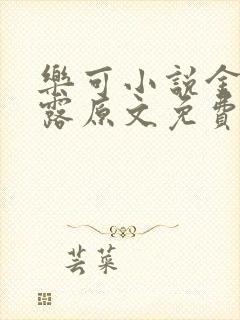 樂可小說金
露原文免費
芸菜